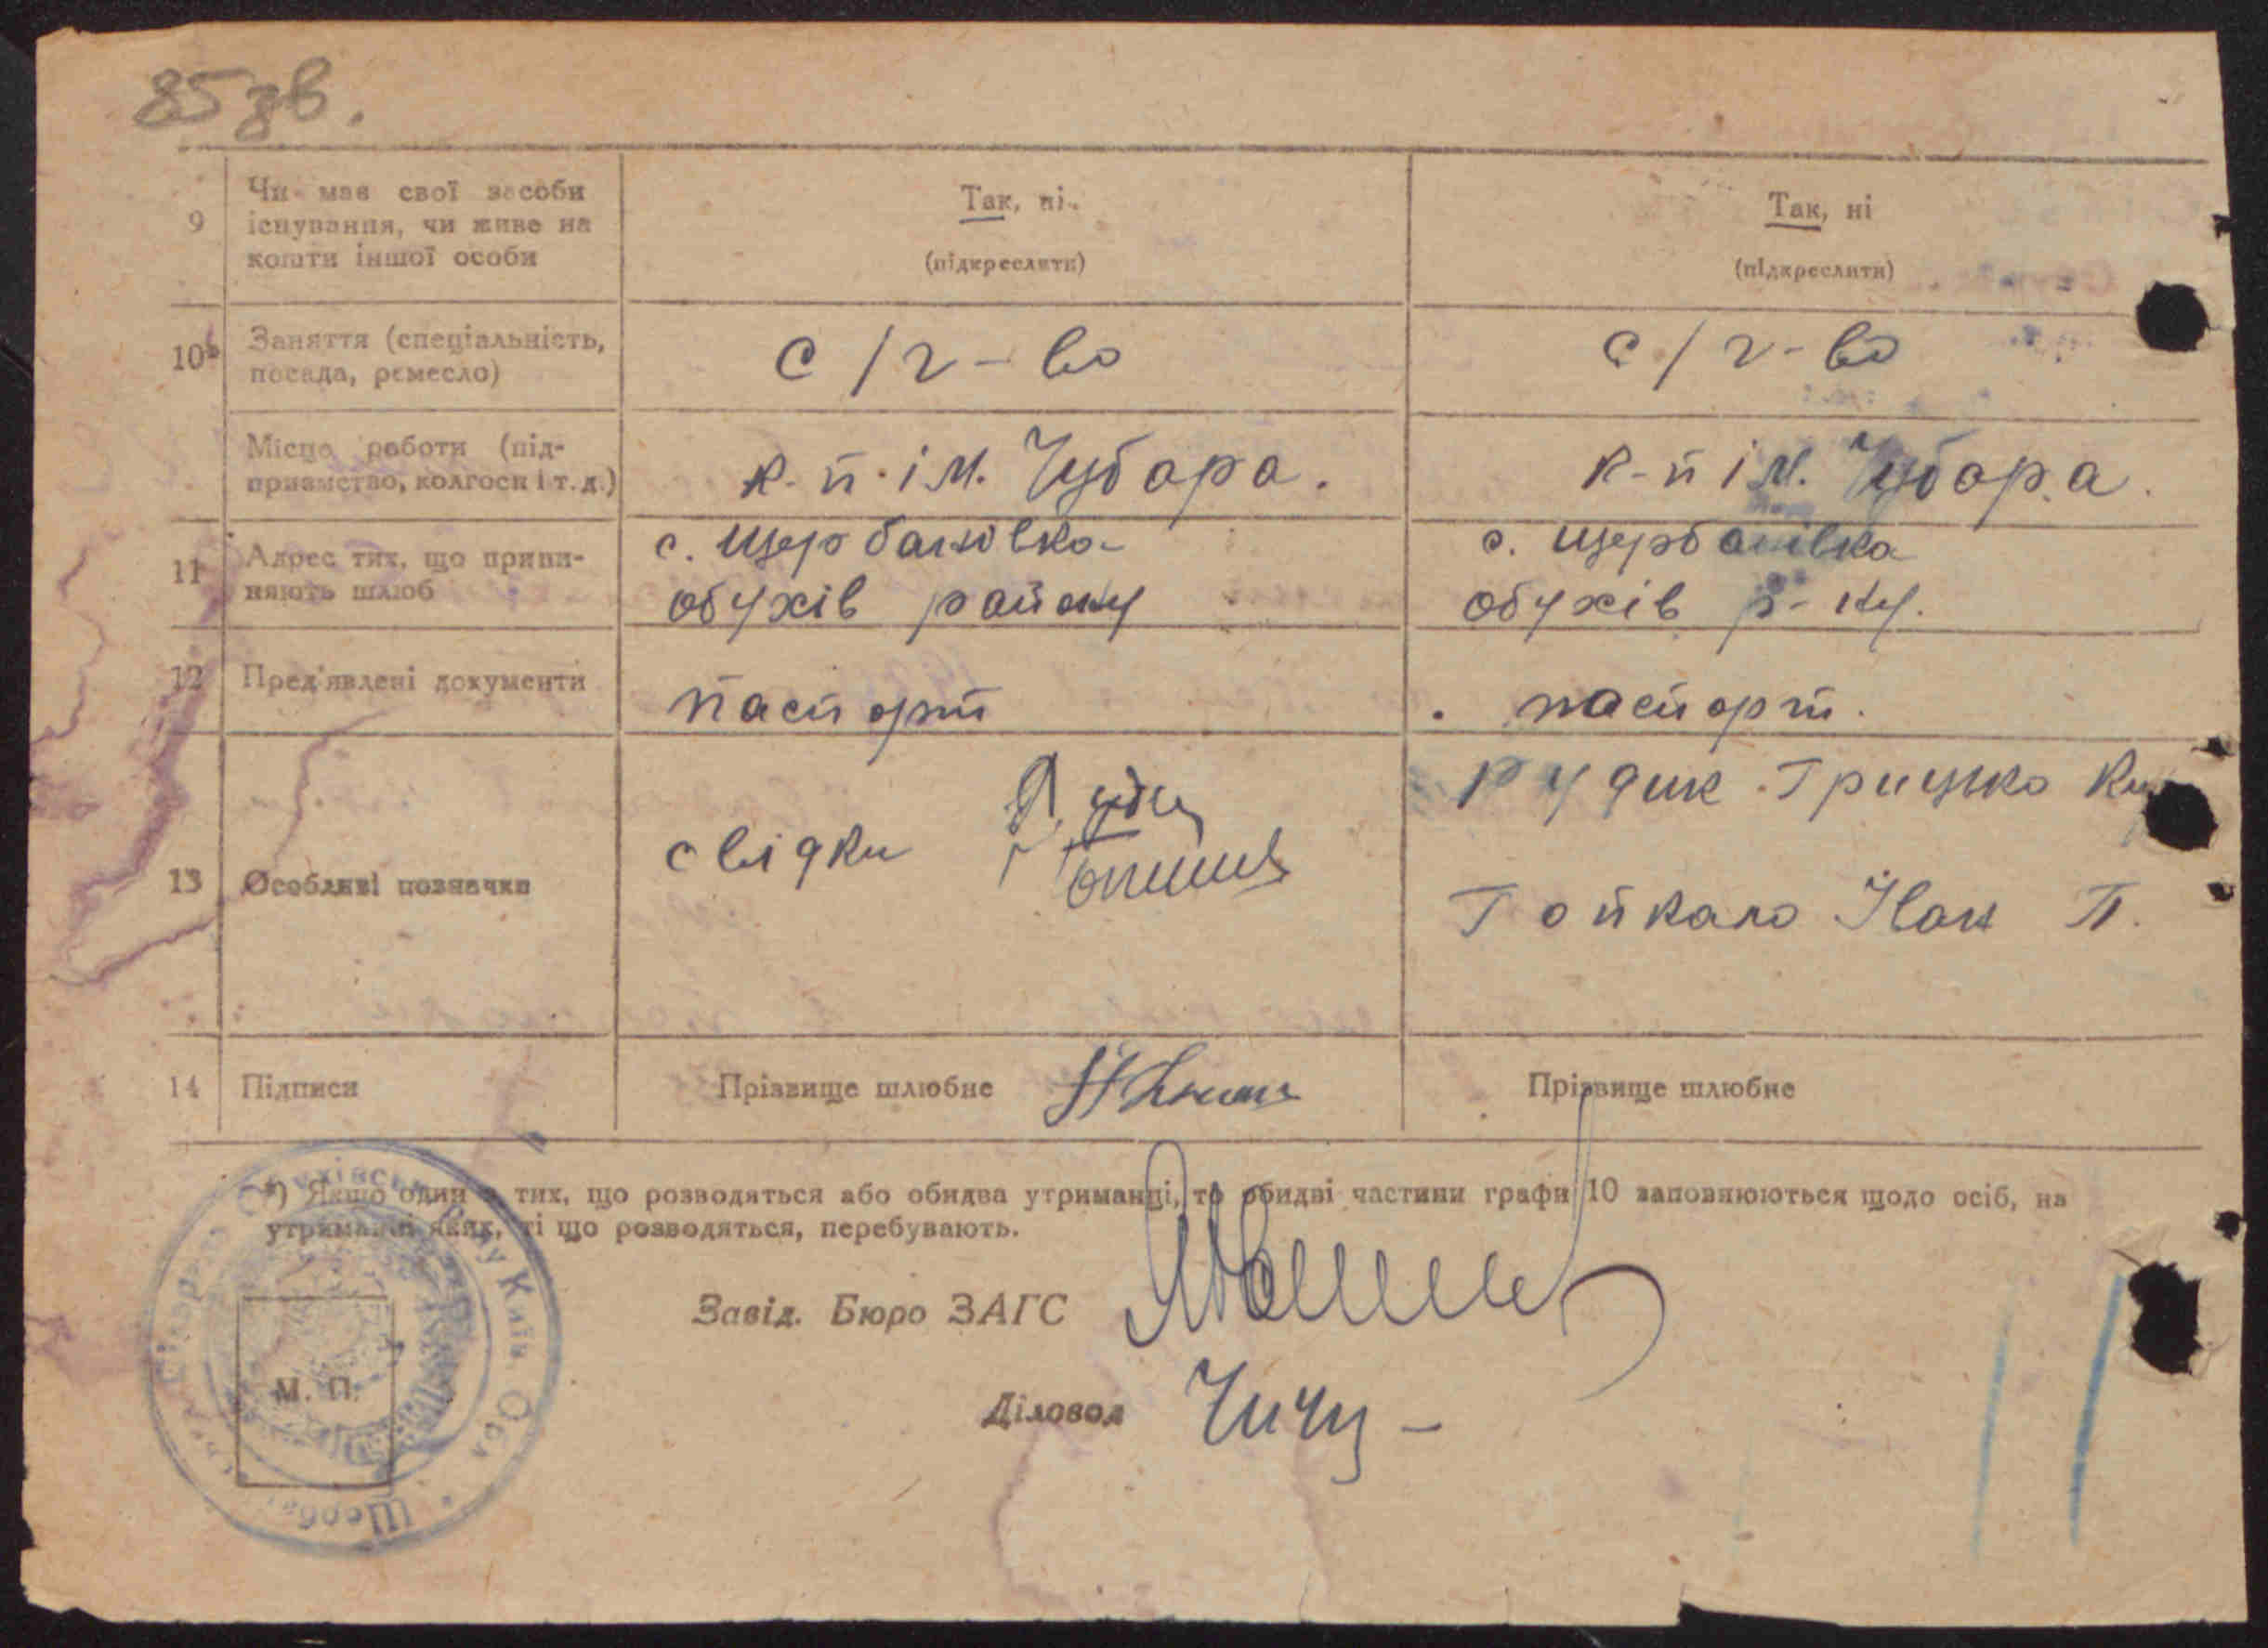 85 зв.
9
Чи має свої засоби
існування, чи живе на
кошти іншої особи
Так, ні.
(підкреслити)
Так, ні
(підкреслити)
10
Заняття (спеціальність,
посада, ремесло)
с/г-во
с/г-во
Місце роботи (під-
приємство, колгосп і т. д.)
к-п. ім. Чубара.
к-п ім. Чубара.
11
Адрес тих, що припи-
няють шлюб
с. Щербанівка
обухів району
с. Щербанівка
обухів р-ну.
12
Пред'явлені документи
паспорт
паспорт.
13
Особливі позначки
свідки
Рудик Грицко
Тойкало Іван П.
14
Підписи
Прізвище шлюбне
Прізвище шлюбне
*) Якщо один з тих, що розводяться або обидва утриманці, то обидві частини графи 10 заповнюються щодо осіб, на
утриманні яких, ті що розводяться, перебувають.
Завід. Бюро ЗАГС
Діловод
М. П.